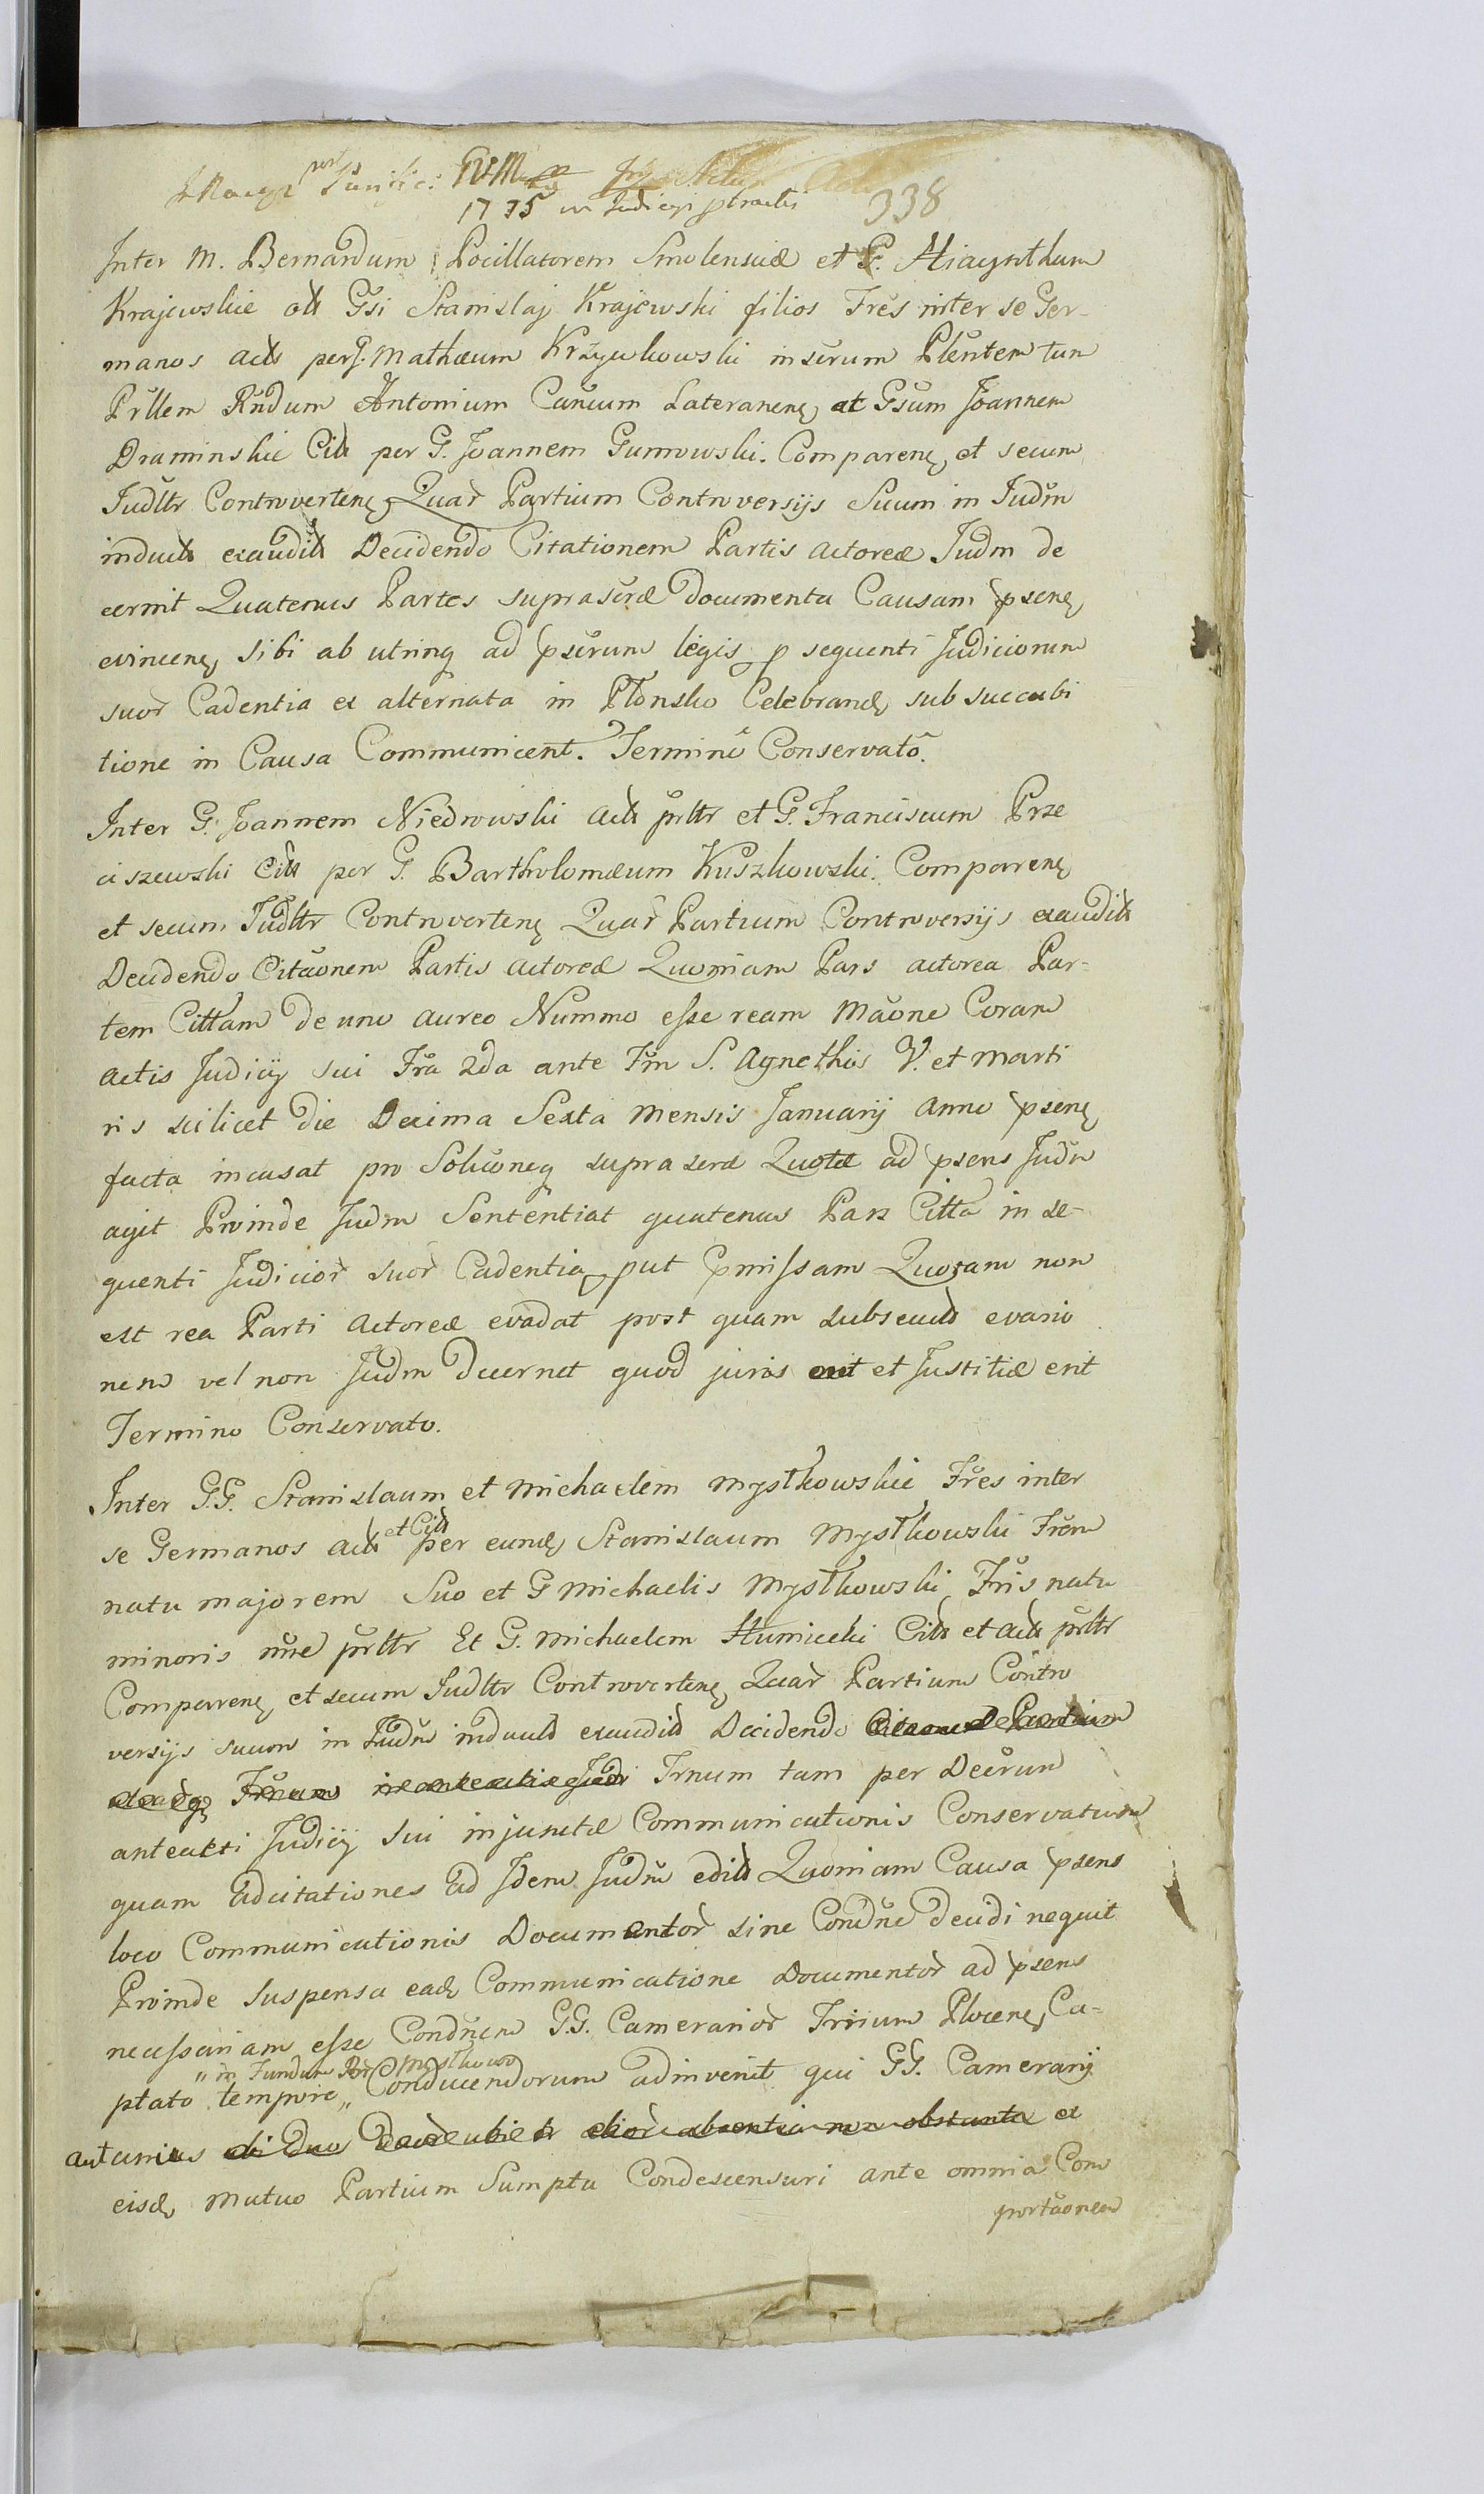 338
1775 in Judicys ptractis
Inter M. Bernardum Pocillatorem Smolensciæ et G. Hiacynthum
Krajewskie olt Gsi Stanislaj Krajewski filios Frēs inter se Ger-
manos actt per G. Mathæum Krzyczkowski inserum Plēntem tun
Prllem Rñdum Antonium Canēum Lateranenę at Gsum Joannem
Draminskie Citt per G. Joannem Gumowski. Comparenę et secum
Judltr Controvertenę Quaȓ Partium Controversijs Suum in Judm
inductt exauditt Decidendo Citationem Partis actoreæ Judm de
cernit Quatenus Partes suprascræ Documenta Causam psenę
evincenę sibi ab utrinq ad pscrum legis p sequenti Judiciorum
suoȓ Cadentia ex alternata in Płonsko Celebrandę sub succubi
tione in Causa Communicent. Termino Conservato.
Inter G. Joannem Niedrowski actt prltr et G. Franciscum Prze
ciszewski Citt per G. Bartholomæum Kuszkowski. Comparenę
et secum Judltr Controvertenę Quaȓ Partium Controversijs exauditt
Decidendo Citaōnem Partis actoreæ Quoniam Pars actorea Par-
tem Cittam de uno aureo Nummo eſse ream Maōne Coram
actis Judicij sui Fra 2da ante Fm S. Agnethis V. et Marti
ris scilicet die Decima Sexta Mensis Januarij anno psenę
facta incusat pro Soluōneq suprascræ Quotæ ad psens Judm
agit Proinde Judm Sententiat quatenus Pars Citta in se-
quenti Judicioȓ suoȓ Cadentia put pmiſsam Quotam non
est rea Parti Actoreæ evadat post quam subsecutt evasio
nem vel non Judm decernet quod juris erit et Justitiæ erit
Termino Conservato.
Inter G.G. Stanislaum et Michaelem Mystkowskie Frēs inter
se Germanos actt et Citt per eundę Stanislaum Mystkowski Frēm
natu majorem Suo et G Michaelis Mystkowski Fris natu
minoris nñe prltr Et G. Michaelem Humięcki Citt et actt prltr
Comparenę et secum Judltr Controvertenę Quaȓ Partium Contro
versijs suum in Judm inductt exauditt Decidendo
Trnum tam per Decrum
anteacti Judicij sui injunctæ Communicationis Conservatum
quam adcitationes ad Idem Judm editt Quoniam Causa psens
loco Communicationis Documentoȓ sine Condñe decidi nequit
Proinde suspensa eadę Communicatione Documentoȓ ad psens
necessariam eſse Condñem G.G. Camerarioȓ Trrium Plocenę Ca-
"in Fundum Boȓ Mystkowo
ptato tempore „ Conducendorum adinvenit qui GG. Camerarij
aut unius absentia non obstante ex
eisdę mutuo Partium Sumptu Condescensuri ante omnia Com
portaōnem